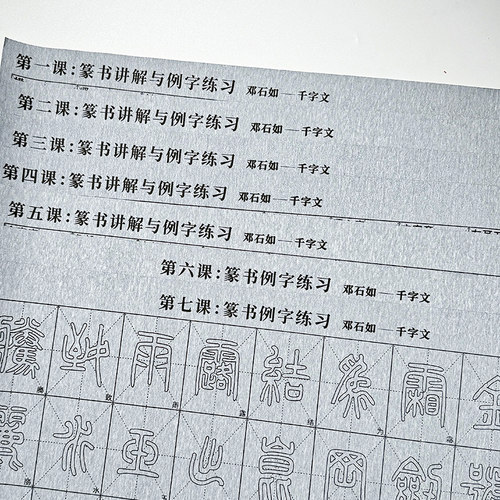 第一课:篆书讲解与例字练习 邓石如—千字文
第二课:篆书讲解与例字练习 邓石如—千字文
第三课:篆书讲解与例字练习 邓石如—千字文
第四课:篆书讲解与例字练习 邓石如—千字文
第五课:篆书讲解与例字练习 邓石如—千字文
第六课:篆书例字练习 邓石如—千字文
第七课:篆书例字练习 邓石如—千字文
騰致雨露結為霜金
麗水玉出崑岡劍號